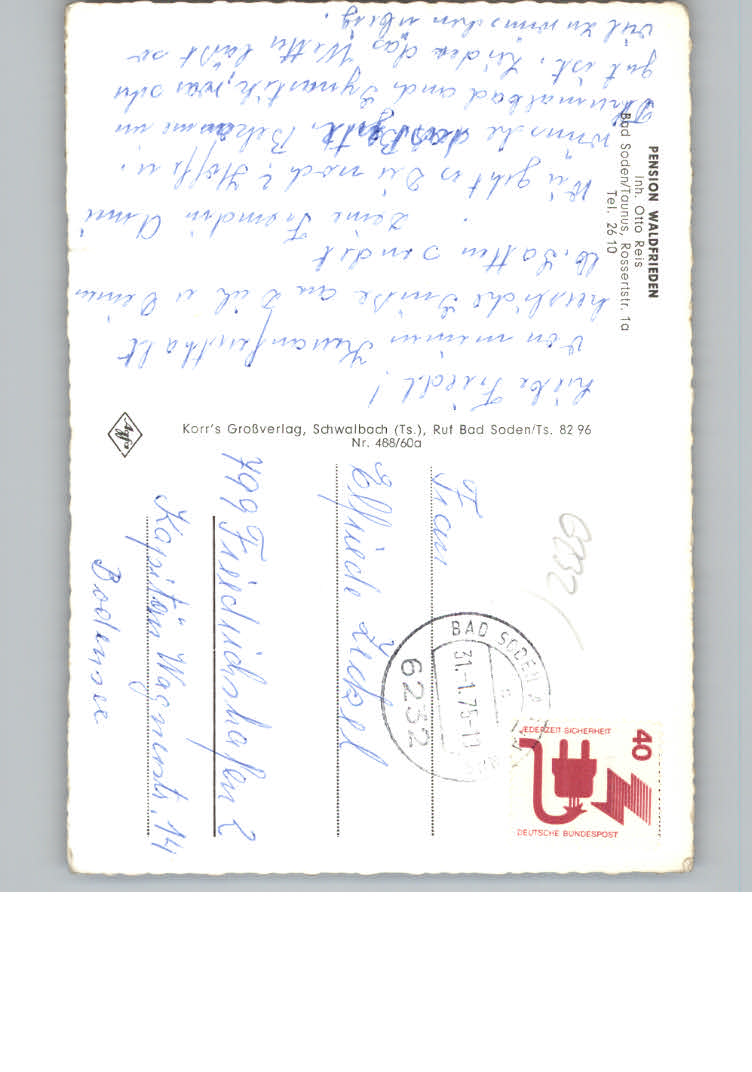 PENSION WALDFRIEDEN
Inh. Otto Reis
Bad Soden/Taunus, Rossertstr. 1a
Tel. 26 10
Liebe Friedel!
Von meinem Kuraufenthalt
herzliche Grüße an Dich u Deinen
lb. Gatten sendet
Deine Freundin Anni
Wie geht es Dir noch? Hoffe u.
wünsche das Beste. Bekomme un
Thermalbad und Gymnastik, was sehr
gut ist. Leider das Wetter läßt so
viel zu wünschen übrig.
Korr's Großverlag, Schwalbach (Ts.), Ruf Bad Soden/Ts. 82 96
Nr. 488/60a
Agfa
6232
40
JEDERZEIT SICHERHEIT
DEUTSCHE BUNDESPOST
BAD SODEN
31.-1.75
6232
Frau
Elfriede
799 Friedrichshafen 2
Kapitän Wagnerstr. 14
Bodensee